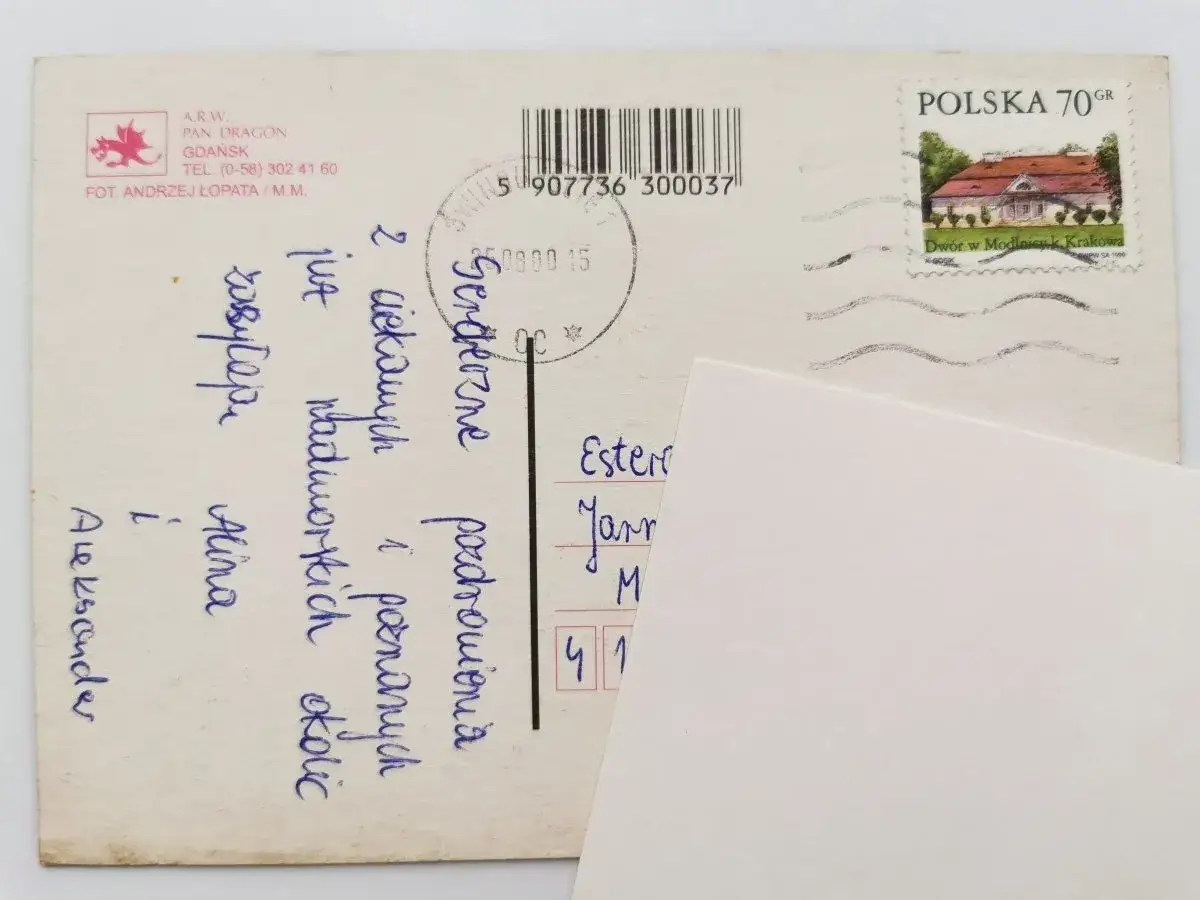 A.R.W.
PAN DRAGON
GDAŃSK
TEL. (0-58) 302 41 60
FOT. ANDRZEJ ŁOPATA / M.M.
5 907736 300037
POLSKA 70 GR
Dwór w Modlnicy k. Krakowa
PWPW SA 1999
08 00 15
Serdeczne pozdrowienia
z ciekawych i poznanych
już nadmorskich okolic
Alina
i
Aleksander
Ester
Jar
M
4 1